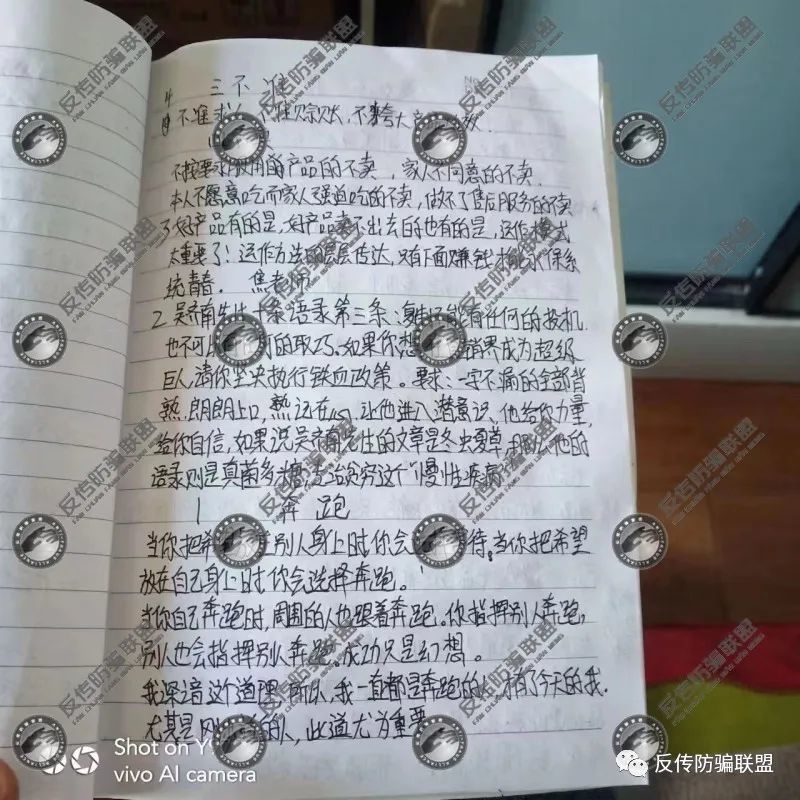 4 三不准
不准求人 不准赊账, 不夸大产
不按要求服用的产品的不卖, 家人不同意的不卖.
本人不愿意吃而家人强迫吃的不卖, 做不了售后服务的不卖
了好产品有的是, 好产品卖不出去的也有的是, 运作模式
太重要了! 运作方法的层层传达, 只有下面赚钱才能永保系
统青春. 焦老师
2. 吴 先生 十条语录第三条: 能有任何的投机.
也不可 何的取巧. 如果你想 销界成为超级
巨人, 请你坚决执行铁血政策. 要求: 一字不漏的全部背
熟, 朗朗上口, 熟记在心, 让他进入潜意识, 他给你力量,
给你自信, 如果说吴 先生的文章是冬虫夏草, 那么他的
语录则是真菌多糖, 治贫穷这个"慢性疾病"
1 奔跑
当你把希 别人身上时你会 待, 当你把希望
放在自己身上时你会选择奔跑.
当你自己奔跑时, 周围的人也跟着奔跑. 你指挥别人奔跑,
别人也会指挥别人奔跑, 成功只是幻想.
我深谙这个道理, 所以, 我一直都是奔跑的人, 才有了今天的我.
尤其是 的人, 此道尤为重要
Shot on Y
vivo AI camera
反传防骗联盟
FAN CHUAN FANG PIAN LIAN MENG